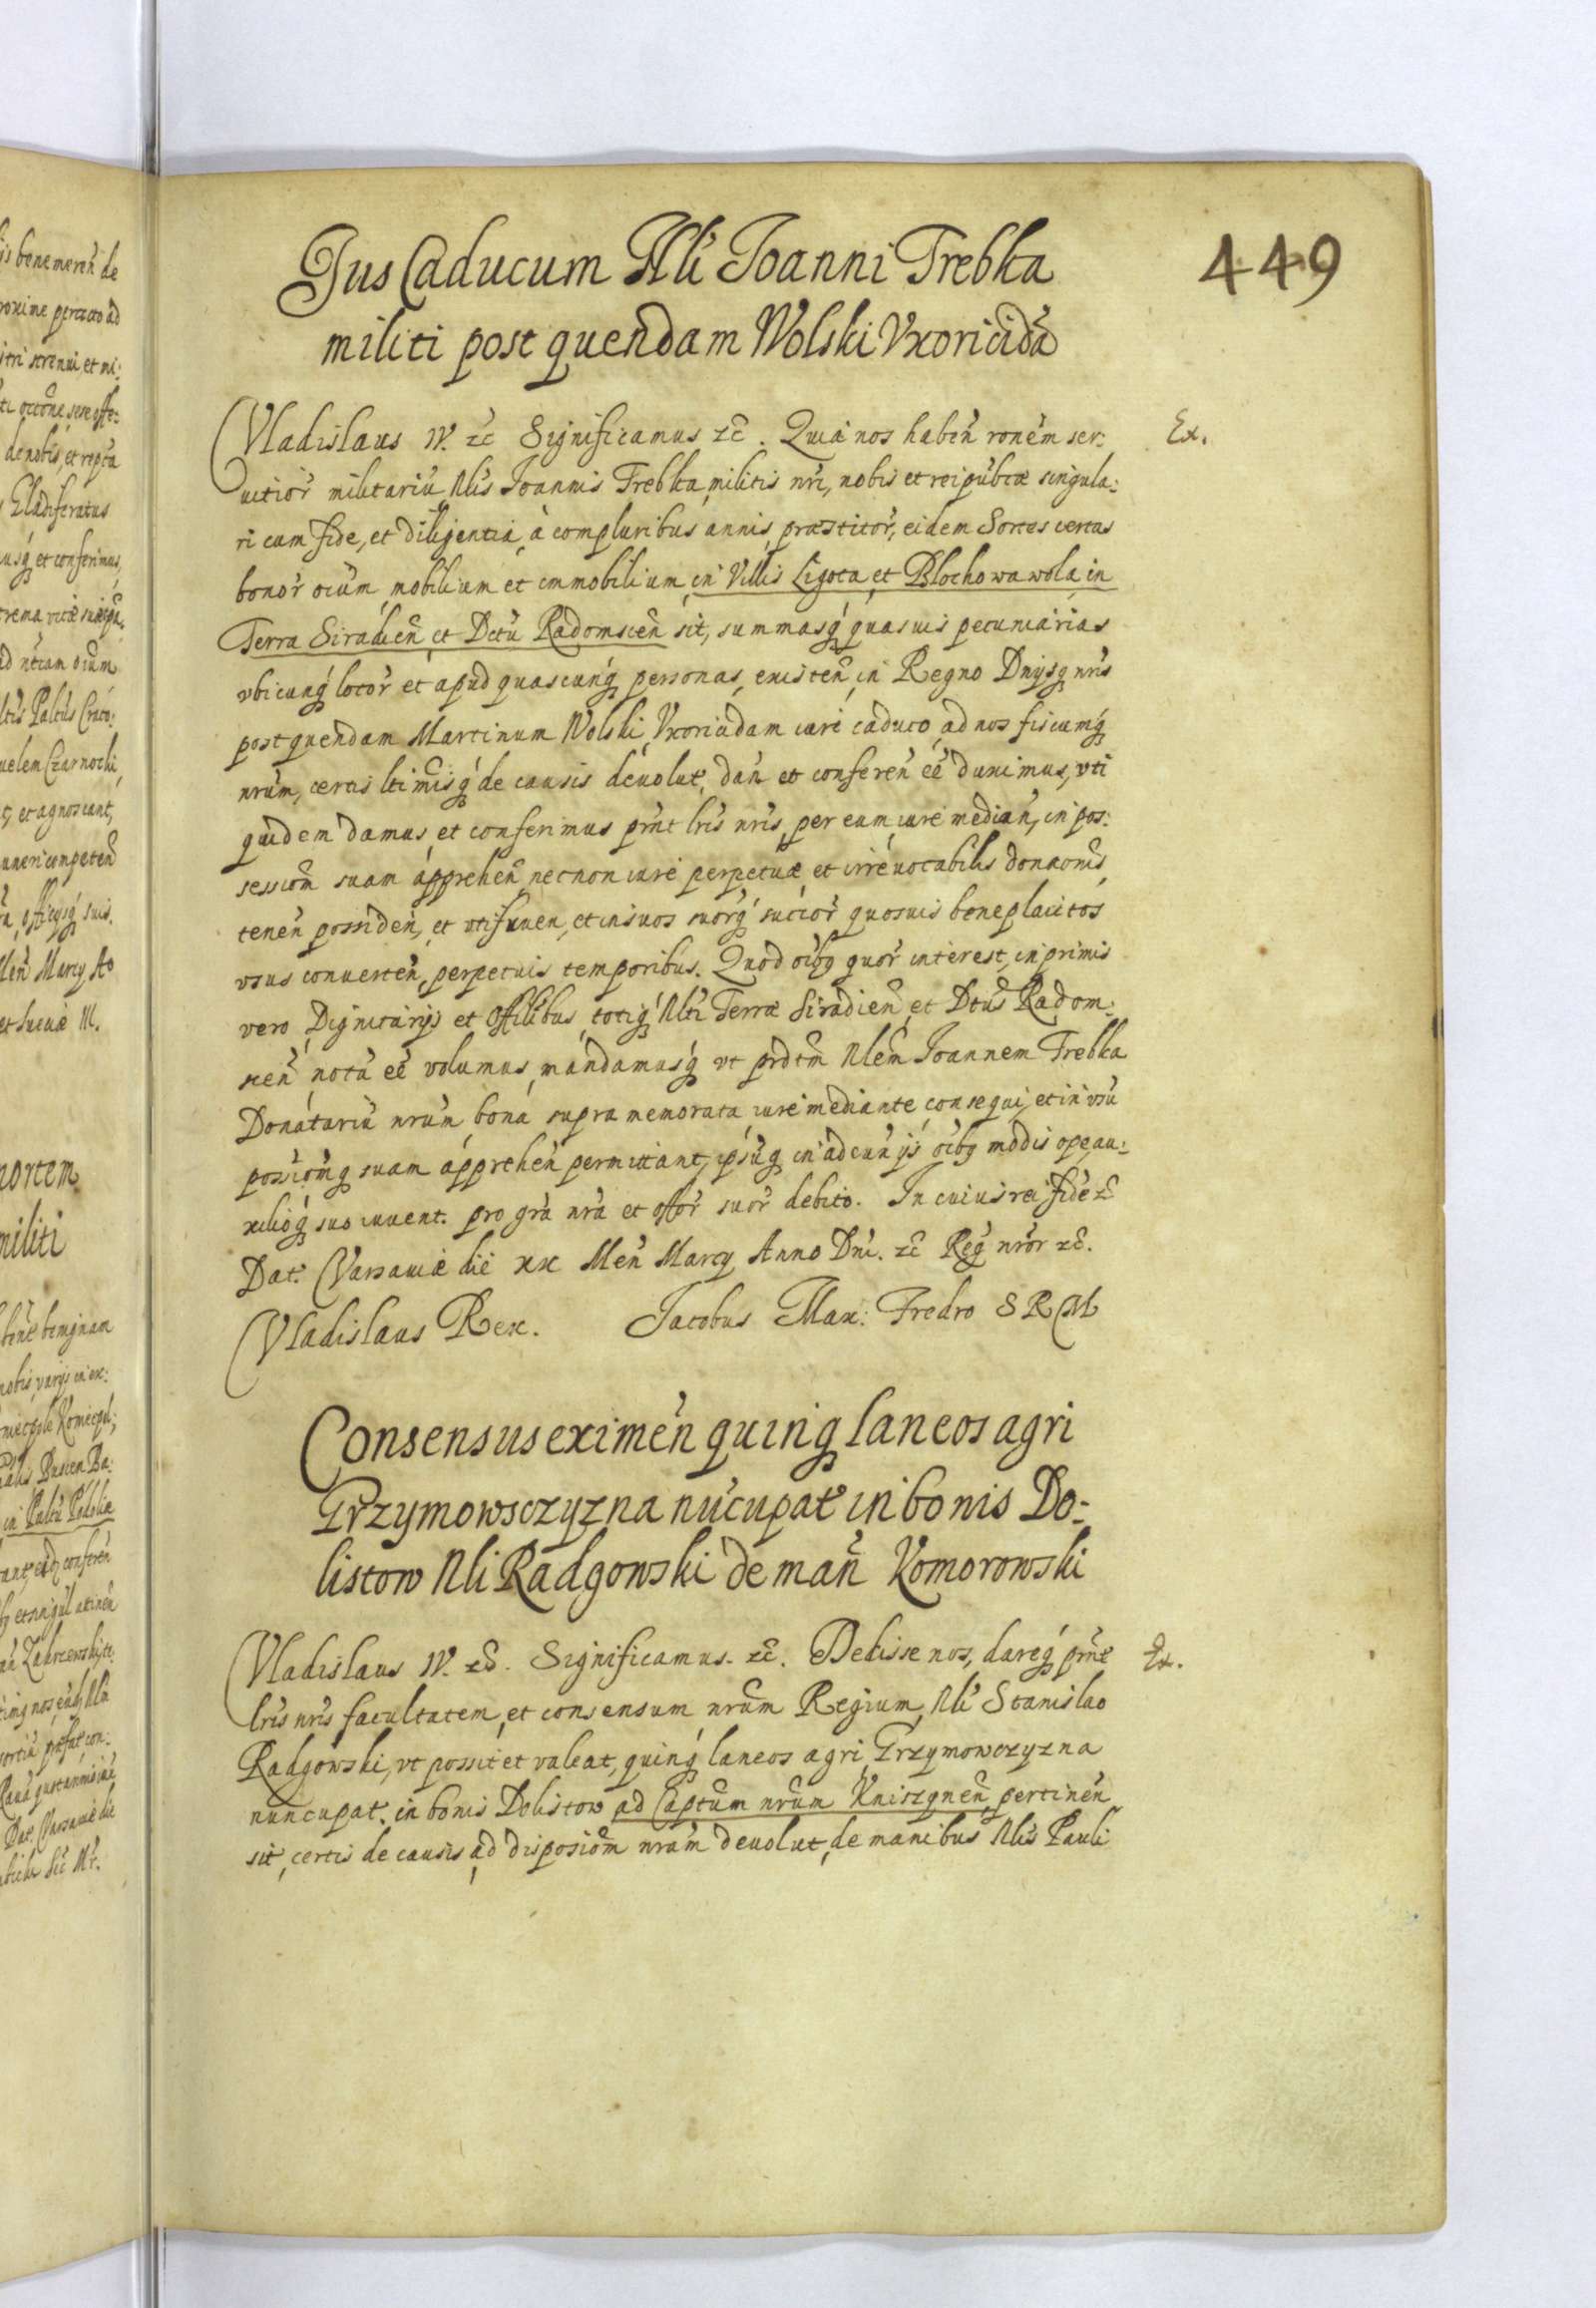 449
Jus Caducum Nli Joanni Trebka
militi post quendam Wolski Vxoricidã
Vladislaus IV. zc Significamus zc. Quia nos haben̄ ronem ser:
uitior militariũ Nlis Joannis Trebka militis nri, nobis et reipubcæ singula:
ri cum fide, et diligentia, à compluribus annis, præstitor, eidem Sortes certas
bonor oium, mobilium et immobilium, in Villis Ligota, et Blochowawola, in
Terra Siradien̄ et Dctu Radomscen̄ sit, summasq quasuis pecuniarias
vbicunq locor et apud quascunq personas, existen̄ in Regno Dnysq nris
post quendam Martinum Wolski, Vxoricidam iure caduco, ad nos fiscumq
nrum, certis ltimisq de causis deuolut, dan̄ et conferen̄ eē duximus, vti
quidem damus, et conferimus prñt lris nris, per eum, iure median̄, in pos:
sessiom suam apprehen̄ necnon iure perpetuæ et irreuocabilis donaonis,
tenen̄ possiden̄, et vtifruen, et in suos suorq succor quosuis beneplacitos
vsus conuerten̄, perpetuis temporibus. Quod oibq quor interest, inprimis
vero Dignitarijs et Offilibus, totiq Nlti Terræ Siradien̄ et Dctus Radom:
scen̄ notũ eē volumus, mandamusq vt prdtm Nlem Joannem Trebka
Donatariũ nrum, bona supra memorata, iure mediante, consequi, et in vsũ
possiomq suam apprehen̄ permittant, ipsũq in adeun̄ ijs oibq modis ope, au:
xilioq suo iuuent. pro gra nra et offor suor debito. In cuius rei fidẽ zc
Dat. Varsauiæ die XX Men̄ Marcy Anno Dni. zc Reg nror zc.
Vladislaus Rex. Jacobus Max: Fredro SRM
Consensus eximen̄ quinq laneos agri
Grzymowsczyzna nucupat in bonis Do:
listow Nli Radgowski de man̄ Komorowski
Vladislaus IV. zc. Significamus. zc. Dedisse nos, dareq prñt
lris nris facultatem, et consensum nrum Regium, Nli Stanislao
Radgowski, vt possit et valeat, quinq laneos agri, Grzymowczyzna
nuncupat. in bonis Dolistow ad Captum nrum Kniszynen̄, pertinen̄
sit, certis de causis, ad disposiom nram deuolut, de manibus Nlis Pauli
Ex.
Ex.